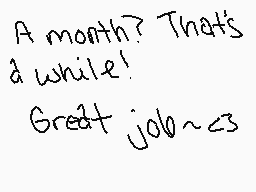 A month? That's
a while!
Great job~<3